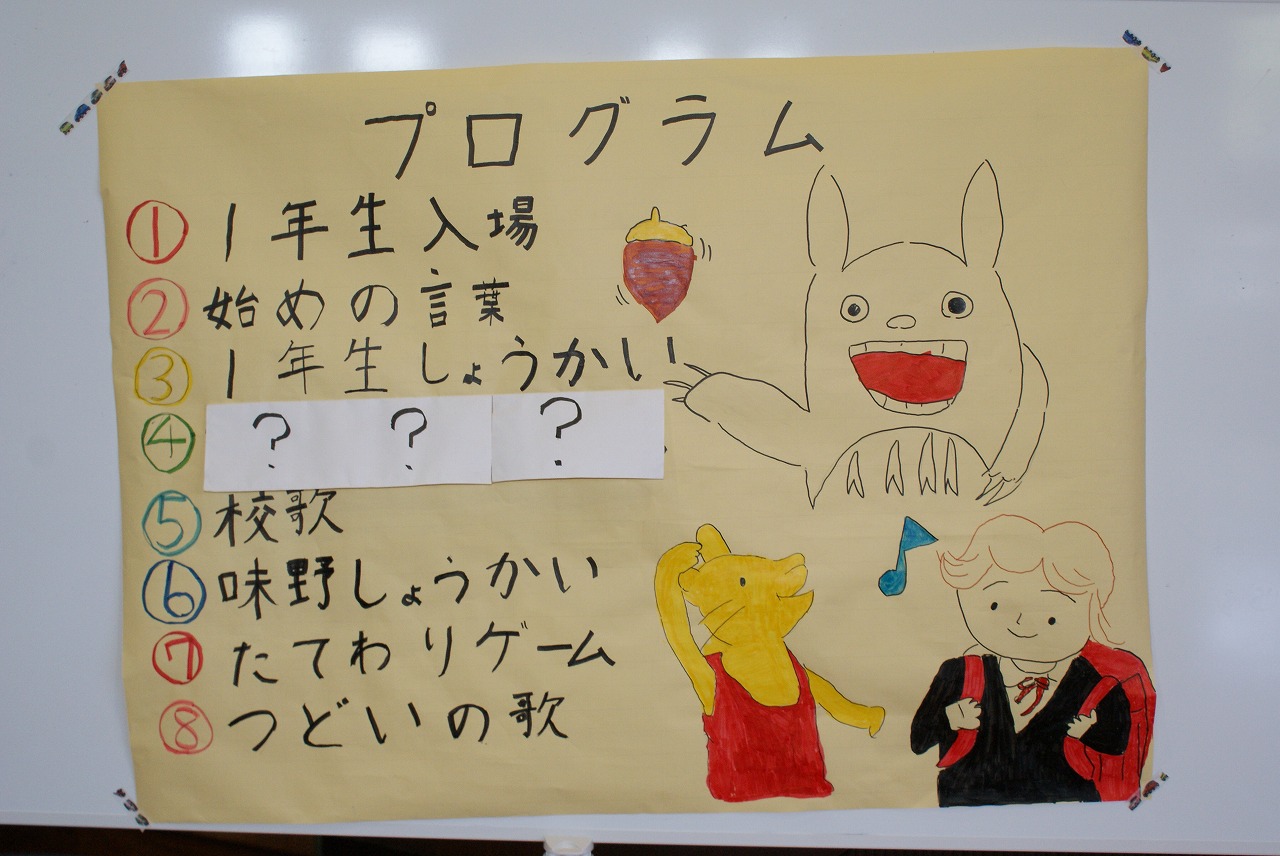 プログラム
① 1年生入場
② 始めの言葉
③ 1年生しょうかい
④ ? ? ?
⑤ 校歌
⑥ 味野しょうかい
⑦ たてわりゲーム
⑧ つどいの歌